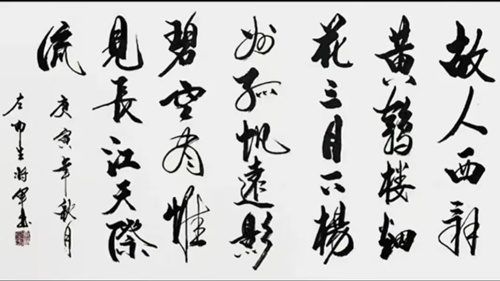 故人西辞
黄鶴楼烟
花三月下楊
州孤帆遠影
碧空尽惟
見長江天際
流
庚寅年秋月